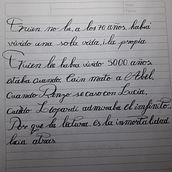 Quien no la, a los 70 años habrá
vivido una sola vida, ¡la propia
Quien la habra vivido 5000 años
estaba cuando Cain mato a Abel,
cuando Renzo se caso con Lucia,
cuando Leopardi admiraba el infinito.
Por que la lectura es la inmortalidad
hacia atras